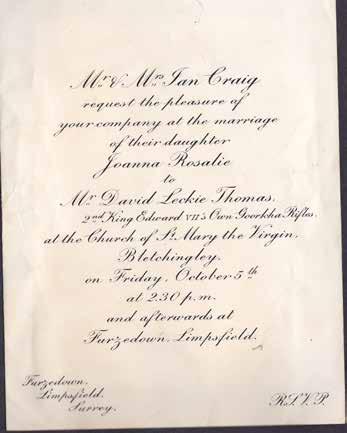 Mr. & Mrs. Ian Craig
request the pleasure of
your company at the marriage
of their daughter
Joanna Rosalie
to
Mr. David Leckie Thomas.
2nd King Edward VII's Own Goorkha Rifles.
at the Church of St. Mary the Virgin,
Bletchingley,
on Friday, October 5th
at 2.30 p.m.
and afterwards at
Furzedown, Limpsfield.
Furzedown,
Limpsfield,
Surrey.
R.S.V.P.